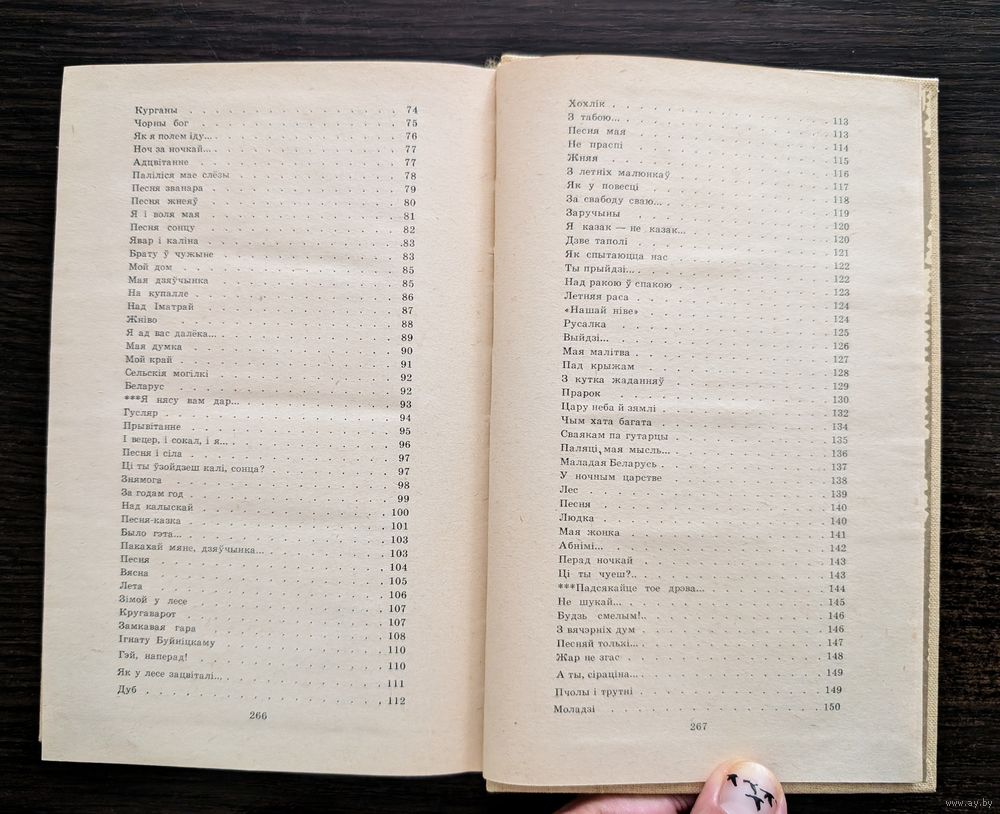 Курганы . . . 74
Чорны бог . . . 75
Як я полем іду... . . . 76
Ноч за ночкай... . . . 77
Адцвітанне . . . 77
Паліліся мае слёзы . . . 78
Песня званара . . . 79
Песня жнеяў . . . 80
Я і воля мая . . . 81
Песня сонцу . . . 82
Явар і каліна . . . 83
Брату ў чужыне . . . 83
Мой дом . . . 85
Мая дзяўчынка . . . 85
На купалле . . . 86
Над Іматрай . . . 87
Жніво . . . 88
Я ад вас далёка... . . . 89
Мая думка . . . 90
Мой край . . . 91
Сельскія могілкі . . . 92
Беларус . . . 92
***Я нясу вам дар... . . . 93
Гусляр . . . 94
Прывітанне . . . 95
І вецер, і сокал, і я... . . . 96
Песня і сіла . . . 97
Ці ты ўзойдзеш калі, сонца? . . . 97
Знямога . . . 98
За годам год . . . 99
Над калыскай . . . 100
Песня-казка . . . 101
Было гэта... . . . 103
Пакахай мяне, дзяўчынка... . . . 103
Песня . . . 104
Вясна . . . 105
Лета . . . 106
Зімой у лесе . . . 107
Кругаварот . . . 107
Замкавая гара . . . 108
Ігнату Буйніцкаму . . . 110
Гэй, наперад! . . . 110
Як у лесе зацвіталі... . . . 111
Дуб . . . 112
266
Хохлік . . . 113
З табою... . . . 113
Песня мая . . . 114
Не праспі . . . 115
Жняя . . . 116
З летніх малюнкаў . . . 117
Як у повесці . . . 118
За свабоду сваю... . . . 119
Заручыны . . . 120
Я казак — не казак... . . . 120
Дзве таполі . . . 121
Як спытаюцца нас . . . 122
Ты прыйдзі... . . . 122
Над ракою ў спакою . . . 123
Летняя раса . . . 124
«Нашай ніве» . . . 124
Русалка . . . 125
Выйдзі... . . . 126
Мая малітва . . . 127
Пад крыжам . . . 128
З кутка жаданняў . . . 129
Прарок . . . 130
Цару неба й зямлі . . . 132
Чым хата багата . . . 134
Сваякам па гутарцы . . . 135
Паляці, мая мысль... . . . 136
Маладая Беларусь . . . 137
У ночным царстве . . . 138
Лес . . . 139
Песня . . . 140
Людка . . . 140
Мая жонка . . . 141
Абнімі... . . . 142
Перад ночкай . . . 143
Ці ты чуеш?.. . . . 143
***Падсякайце тое дрэва... . . . 144
Не шукай... . . . 145
Будзь смелым!.. . . . 146
З вячэрніх дум . . . 146
Песняй толькі... . . . 147
Жар не згас . . . 148
А ты, сіраціна... . . . 149
Пчолы і трутні . . . 149
Моладзі . . . 150
267
www.ay.by